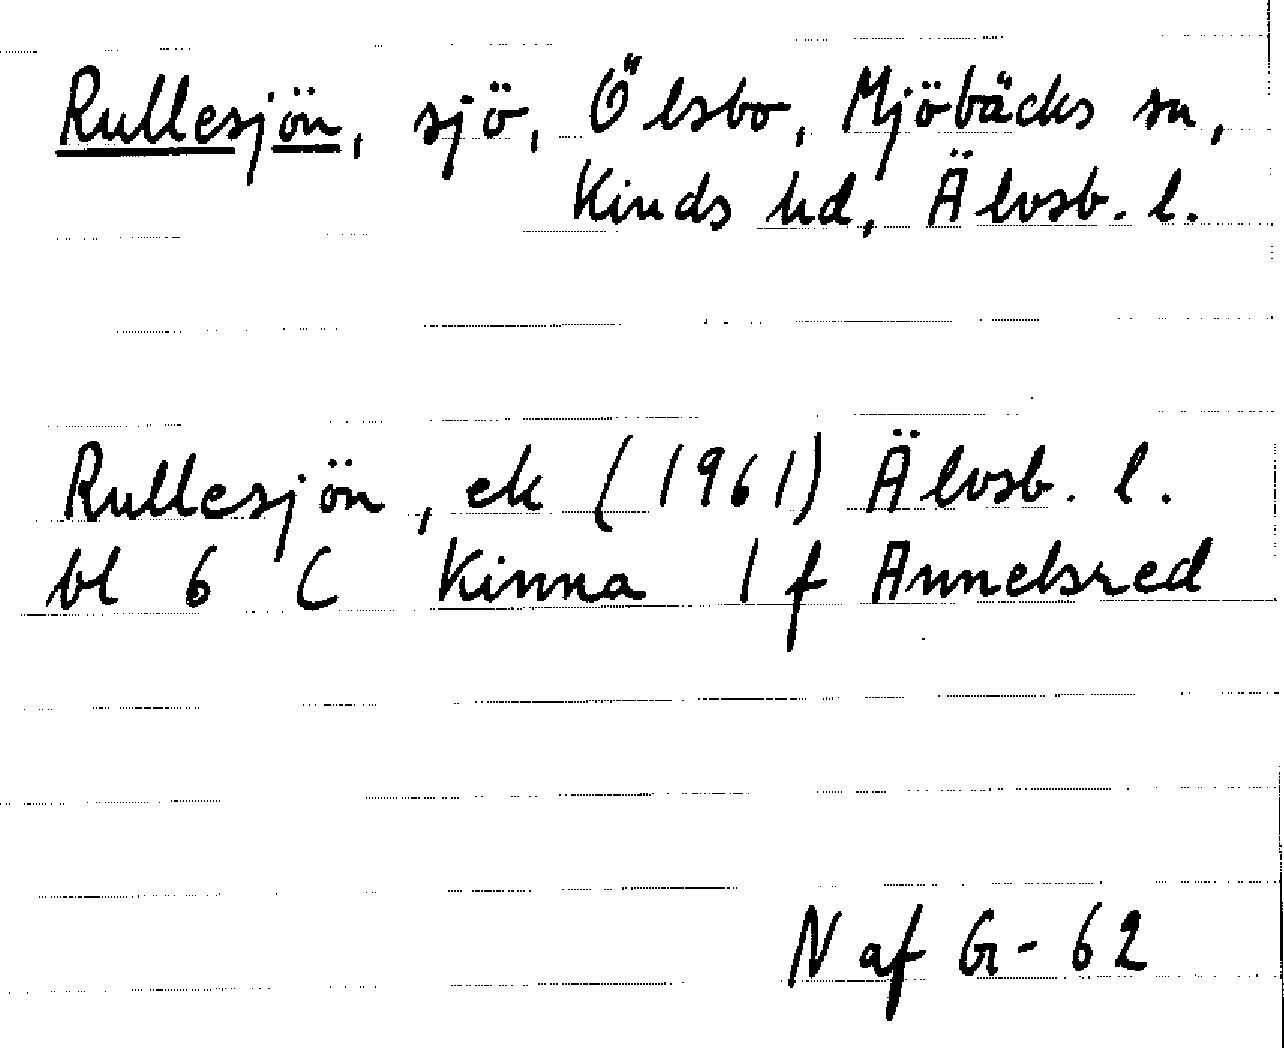 Rullesjön, sjö, Ölsbo, Mjöbäcks sn,
Kinds hd, Älvsb. l.
Rullesjön, ek (1961) Älvsb. l.
bl 6 C Kinna 1 f Annelsred
N af G - 62